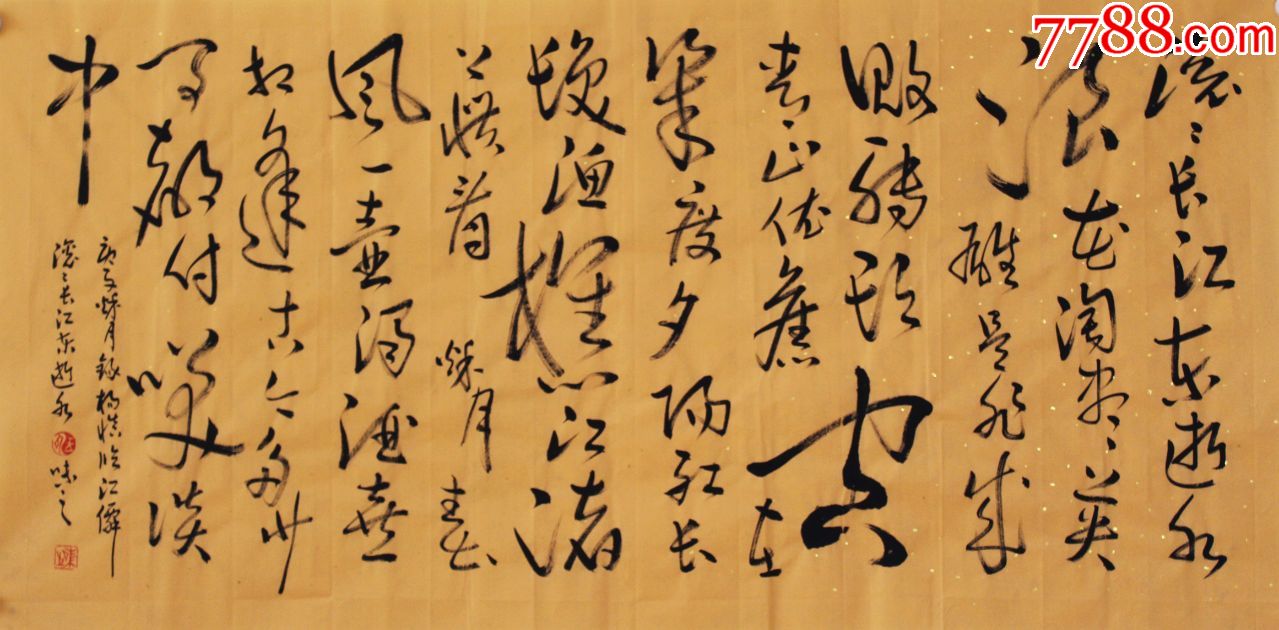 7788.com
滚滚长江东逝水
浪花淘尽英
雄是非成
败转头空
青山依舊在
几度夕阳红长
发渔樵江渚
上惯看秋月春
风一壶浊酒喜
相逢古今多少
事都付笑谈
中
庚寅秋月录杨慎临江仙
滚滚长江东逝水